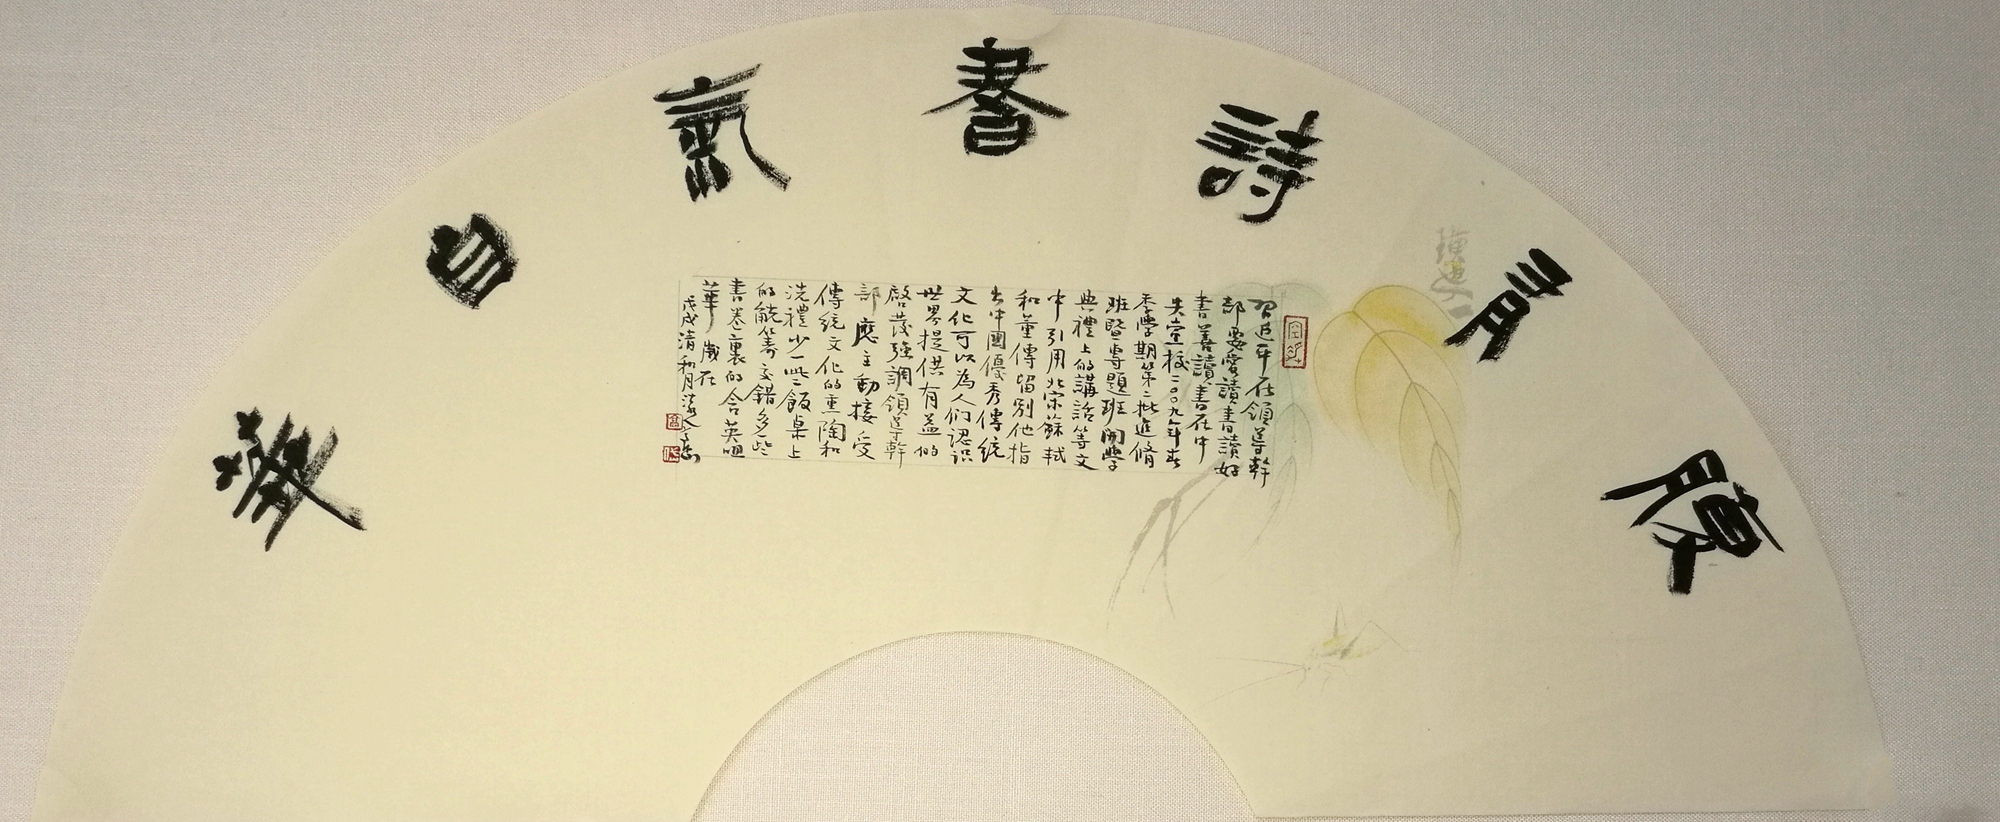 腹有詩書氣自華
習近平在領導幹
部要愛讀書讀好
書善讀書在中
央黨校二〇〇九年春
季學期第二批進脩
班暨專題班開學
典禮上的講話等文
中引用北宋蘇軾
和董傳留別他指
出中國優秀傳統
文化可以為人们認识
世界提供有益的
啓發強調領導幹
部應主動接受
傳統文化的熏陶和
洗禮少一些飯桌上
的觥籌交錯多些
書卷裏的含英咀
華歲在
戊戌清和月